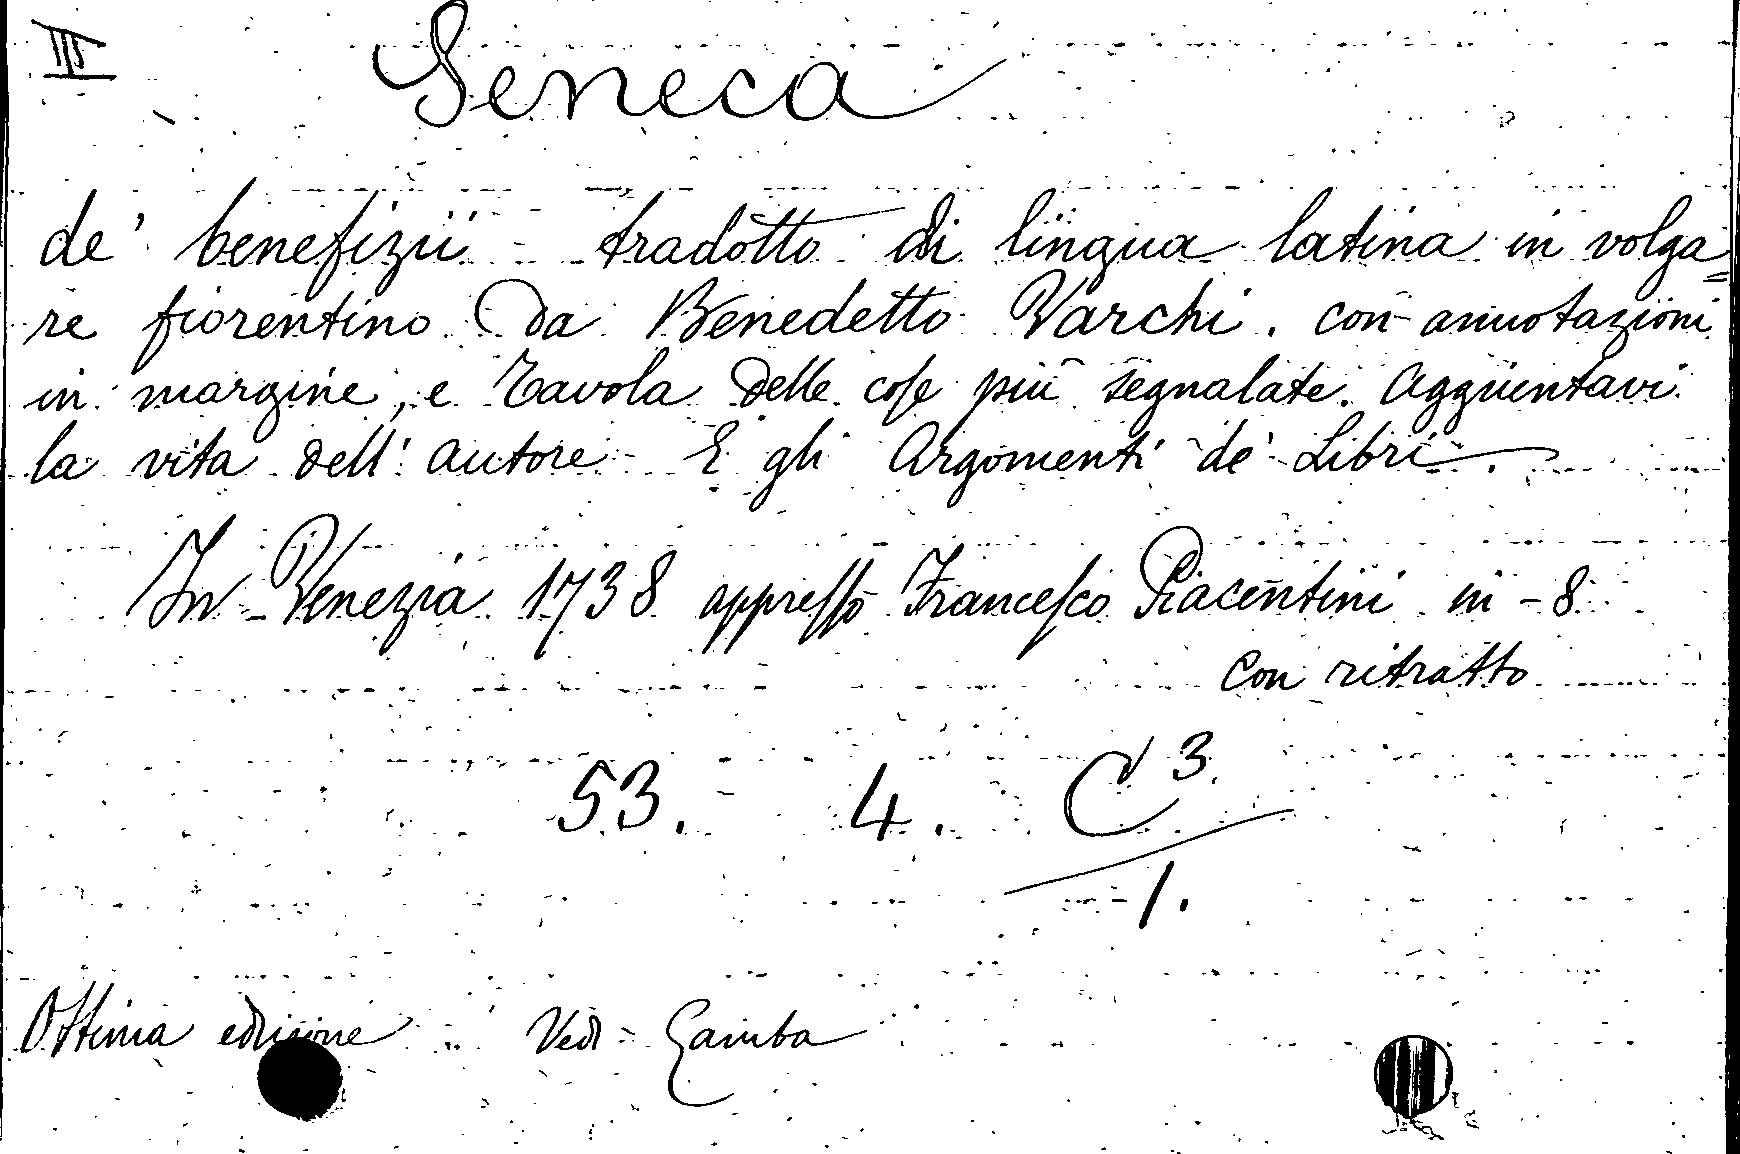 Seneca
de' benefizii tradotto di lingua latina in volga=
re fiorentino da Benedetto Varchi. con annotazioni
in margine, e Tavola delle cose più segnalate. Aggiuntavi
la vita dell'autore E gli Argomenti de' Libri.
In Venezia 1738 appresso Francesco Piacentini in-8
con ritratto
53. 4. C 3.
1.
Ottima edizione Vedi Gamba